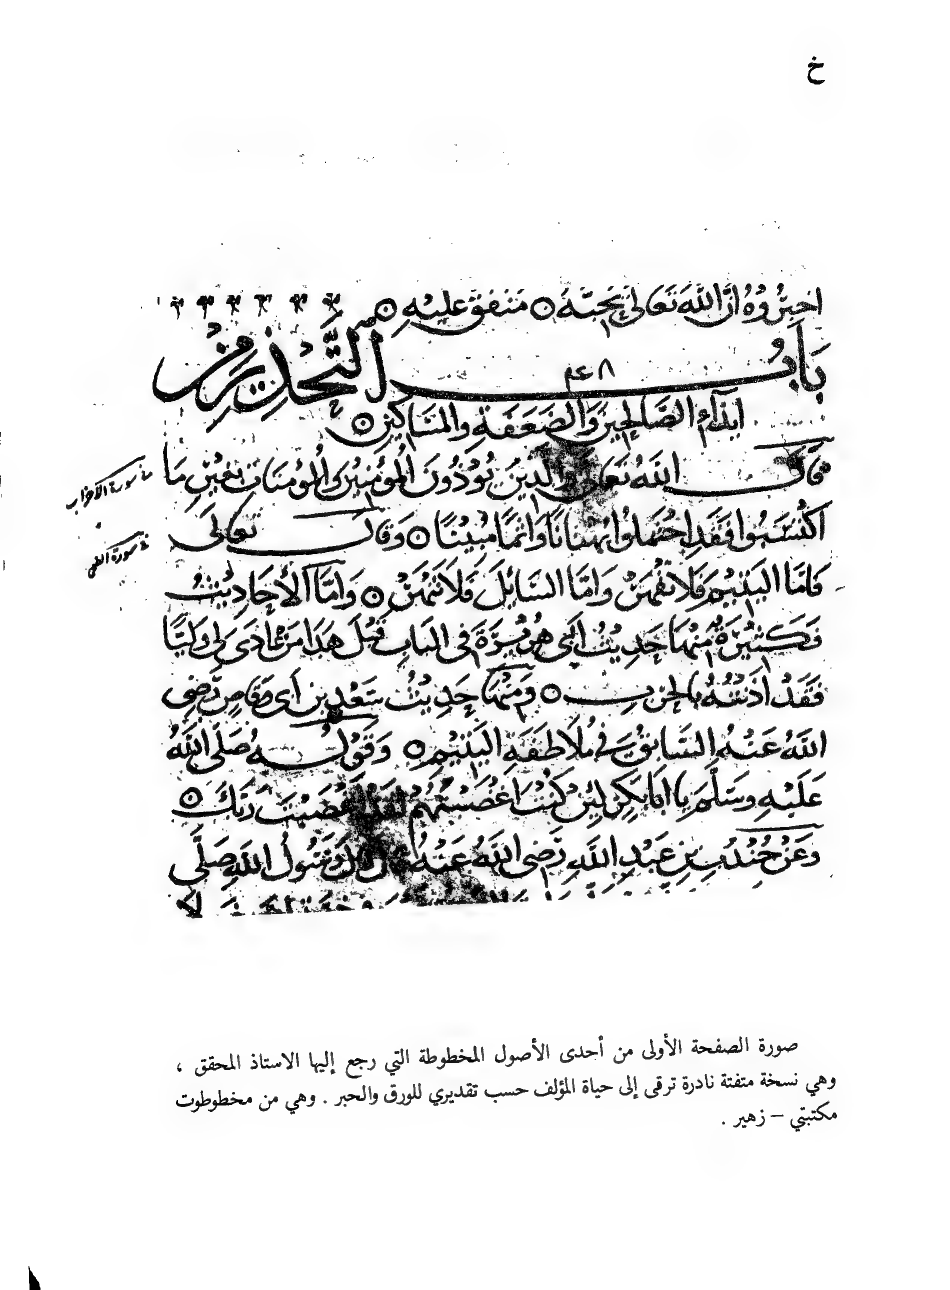 خ
اخبروه ان الله تعالى يحبه ○ متفق عليه ○
باب ٤٨ التحذير من
ايذاء الصالحين والضعفة والمساكين ○
قال الله تعالى والذين يؤذون المؤمنين والمؤمنات بغير ما
اكتسبوا فقد احتملوا بهتانا واثما مبينا ○ وقال تعالى
فاما اليتيم فلا تقهر واما السائل فلا تنهر ○ واما الأحاديث
فكثيرة منها حديث ابي هريرة في الباب قبل هذا من عادى لي وليا
فقد اذنته بالحرب ○ ومنها حديث سعد بن ابي وقاص رضي
الله عنه السابق في ملاطفة اليتيم ○ وقوله صلى الله
عليه وسلم يا ابا بكر لئن كنت اغضبتهم لقد اغضبت ربك ○
وعن جندب بن عبد الله رضي الله عنه قال قال رسول الله صلى
في سورة الأحزاب
في سورة الضحى
صورة الصفحة الأولى من أحدى الأصول المخطوطة التي رجع إليها الاستاذ المحقق ،
وهي نسخة متفتة نادرة ترقى إلى حياة المؤلف حسب تقديري للورق والحبر . وهي من مخطوطوت
مكتبتي – زهير .